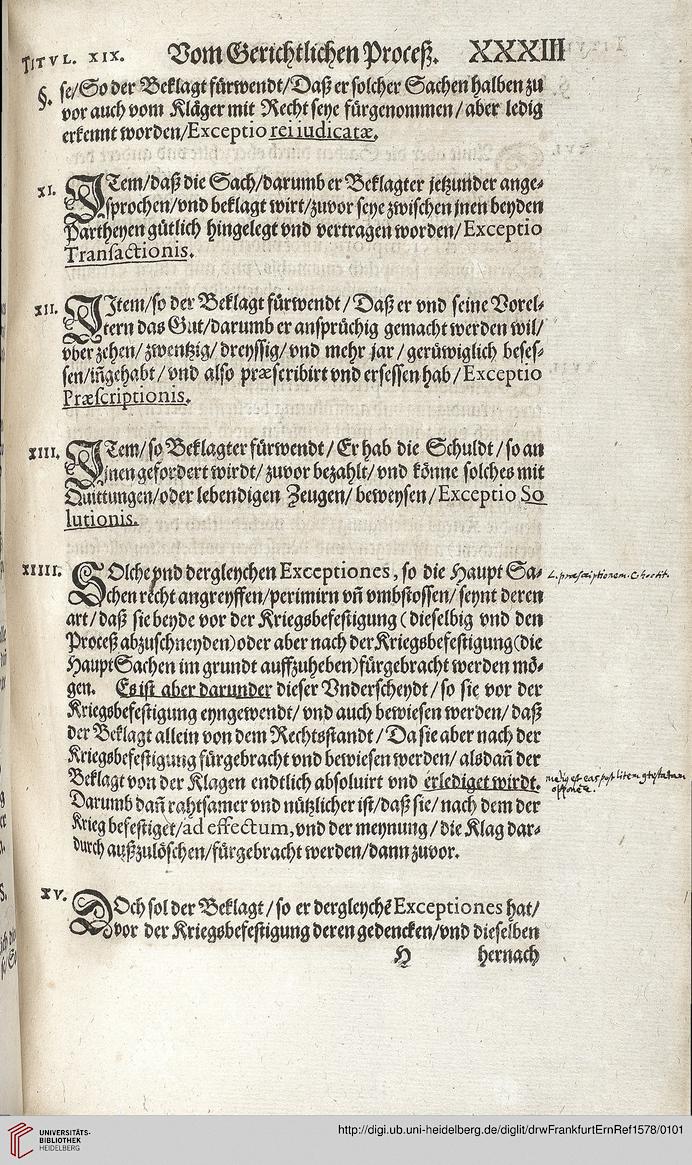 TITVL. XIX. Vom Gerichtlichen Proceß. XXXIII
§. se/So der Beklagt fürwendt/Daß er solcher Sachen halben zu
vor auch vom Kläger mit Recht seye fürgenommen/aber ledig
erkennt worden/Exceptio rei iudicatæ.
XI. ITem/daß die Sach/darumb er Beklagter jetzunder ange-
sprochen/vnd beklagt wirt/zuvor seye zwischen jnen beyden
Partheyen gütlich hingelegt vnd vertragen worden/Exceptio
Transactionis.
XII. IItem/so der Beklagt fürwendt/Daß er vnd seine Vorel-
tern das Gut/darumb er ansprüchig gemacht werden wil/
vber zehen/zwentzig/dreyssig/vnd mehr jar/gerüwiglich beses-
sen/iñgehabt/vnd also præscribirt vnd ersessen hab/Exceptio
Præscriptionis.
XIII. ITem/so Beklagter fürwendt/Er hab die Schuldt/so an
jnen gefordert wirdt/zuvor bezahlt/vnd könne solches mit
Quittungen/oder lebendigen Zeugen/beweysen/Exceptio So
lutionis.
XIIII. SOlche vnd dergleychen Exceptiones, so die Haupt Sa-
chen recht angreyffen/perimirn vñ vmbstossen/seynt deren
art/daß sie beyde vor der Kriegsbefestigung (dieselbig vnd den
Proceß abzuschneyden) oder aber nach der Kriegsbefestigung (die
Haupt Sachen im grundt auffzuheben) fürgebracht werden mö-
gen. Es ist aber darunder dieser Vnderscheydt/so sie vor der
Kriegsbefestigung eyngewendt/vnd auch bewiesen werden/daß
der Beklagt allein von dem Rechtsstandt/Da sie aber nach der
Kriegsbefestigung fürgebracht vnd bewiesen werden/alsdañ der
Beklagt von der Klagen endtlich absoluirt vnd erlediget wirdt.
Darumb dañ rahtsamer vnd nützlicher ist/daß sie/nach dem der
Krieg befestiget/ad effectum, vnd der meynung/die Klag dar-
durch außzulöschen/fürgebracht werden/dann zuvor.
XV. DOch sol der Beklagt/so er dergleychẽ Exceptiones hat/
vor der Kriegsbefestigung deren gedencken/vnd dieselben
H hernach
L. præscriptionem. C.
post litem
UNIVERSITÄTS-
BIBLIOTHEK
HEIDELBERG
http://digi.ub.uni-heidelberg.de/diglit/drwFrankfurtErnRef1578/0101